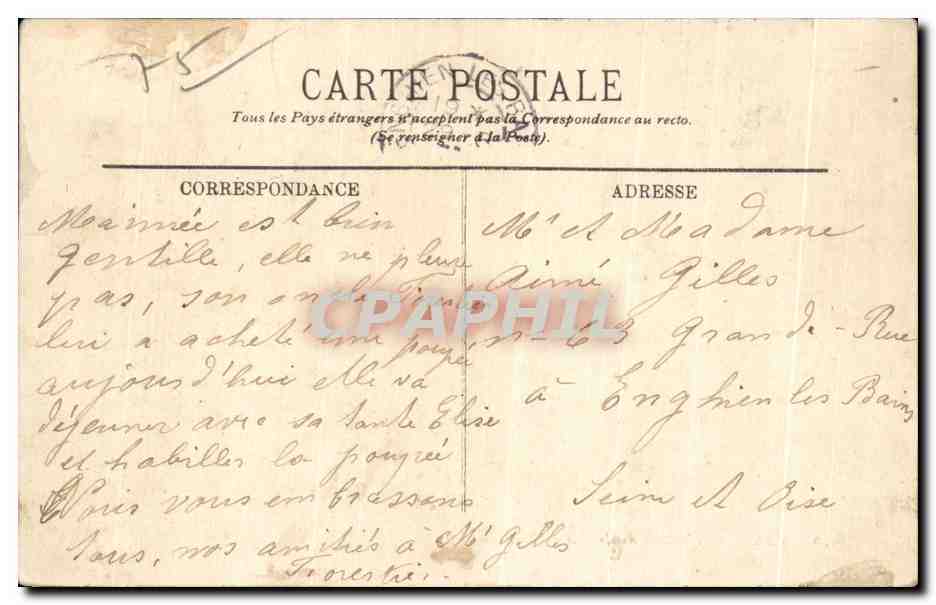 75
CARTE POSTALE
Tous les Pays étrangers n'acceptent pas la Correspondance au recto.
(Se renseigner à la Poste).
CORRESPONDANCE
Maimée est bien
gentille, elle ne pleure
pas, son oncle
lui a acheté une poupée
aujourd'hui elle va
déjeuner avec sa tante Elise
et habiller la poupée
Nous vous embrassons
tous, nos amitiés à Mr Gilles
Forestier.
ADRESSE
Mr et Madame
Aimé Gilles
n- 63 Grande-Rue
à Enghien les Bains
Seine et Oise
CPAPHIL